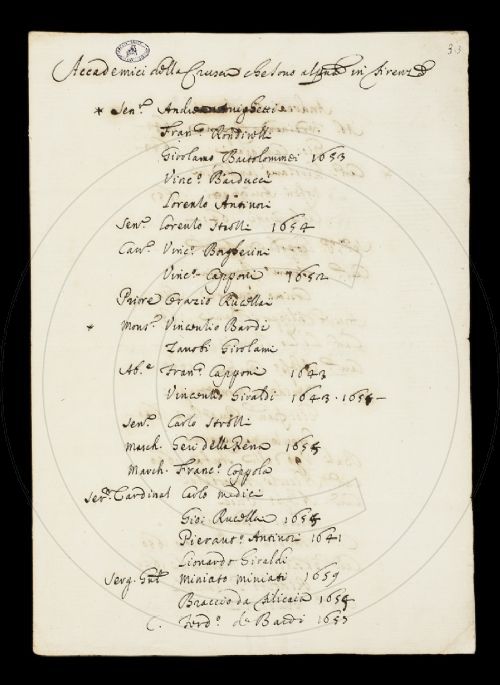 33
Accademici della Crusca che sono al pñte in Firenze
* Sen.r Andrea
Franc.o Rondinelli
Girolamo Bartolommei 1653
Vinc.o Barducci
Lorenzo Antinori
Sen.r Lorenzo Strozzi 1654
Cau.r Vinc.o Borgherini
Vinc.o Capponi 1652
Priore Orazio Rucellai
* Mons.r Vincenzio Bardi
Zanobi Girolami
Ab.e Franc.o Capponi 1643
Vincenzio Giraldi 1643. 1654
Sen.r Carlo Strozzi
March. Geri della Rena 1654
March. Franc.o Coppola
Ser.mo Cardinal Carlo Medici
Gio: Rucellai 1654
Pierant.o Antinori 1641
Lionardo Giraldi
Serg. Gñle Miniato Miniati 1659
Braccio da Filicaia 1654
C. Ferd.o de Bardi 1653